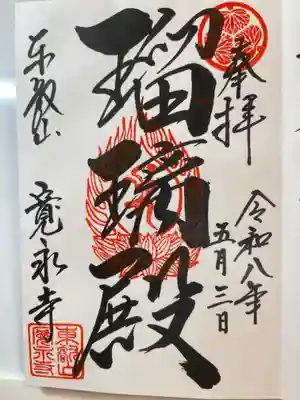 奉拝
令和八年
五月三日
瑠璃殿
東叡山 寛永寺
東叡山
寛永寺